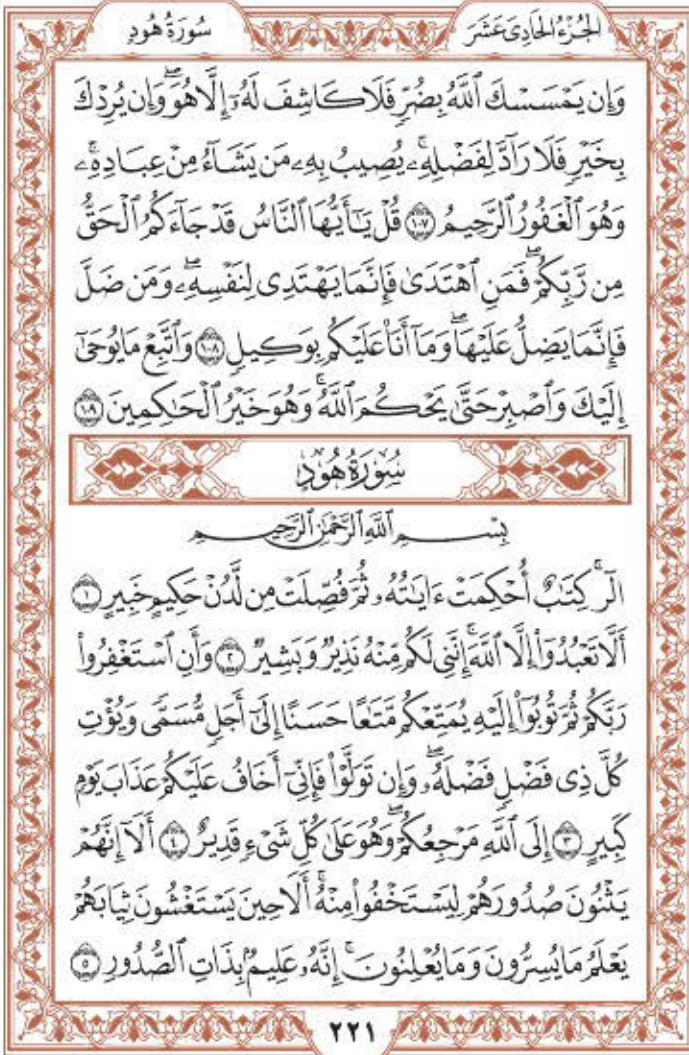 الجُزْءُ الحَادِىَ عَشَرَ
سُورَةُ هُودٍ
وَإِن يَمْسَسْكَ ٱللَّهُ بِضُرٍّ فَلَا كَاشِفَ لَهُۥٓ إِلَّا هُوَۖ وَإِن يُرِدْكَ
بِخَيْرٍ فَلَا رَآدَّ لِفَضْلِهِۦۚ يُصِيبُ بِهِۦ مَن يَشَآءُ مِنْ عِبَادِهِۦۚ
وَهُوَ ٱلْغَفُورُ ٱلرَّحِيمُ ١٠٧ قُلْ يَٰٓأَيُّهَا ٱلنَّاسُ قَدْ جَآءَكُمُ ٱلْحَقُّ
مِن رَّبِّكُمْۖ فَمَنِ ٱهْتَدَىٰ فَإِنَّمَا يَهْتَدِى لِنَفْسِهِۦۖ وَمَن ضَلَّ
فَإِنَّمَا يَضِلُّ عَلَيْهَاۖ وَمَآ أَنَا۠ عَلَيْكُم بِوَكِيلٍ ١٠٨ وَٱتَّبِعْ مَا يُوحَىٰٓ
إِلَيْكَ وَٱصْبِرْ حَتَّىٰ يَحْكُمَ ٱللَّهُۚ وَهُوَ خَيْرُ ٱلْحَٰكِمِينَ ١٠٩
سُورَةُ هُودٍ
بِسْمِ ٱللَّهِ ٱلرَّحْمَٰنِ ٱلرَّحِيمِ
الٓرۚ كِتَٰبٌ أُحْكِمَتْ ءَايَٰتُهُۥ ثُمَّ فُصِّلَتْ مِن لَّدُنْ حَكِيمٍ خَبِيرٍ ١
أَلَّا تَعْبُدُوٓا۟ إِلَّا ٱللَّهَۚ إِنَّنِى لَكُم مِّنْهُ نَذِيرٌ وَبَشِيرٌ ٢ وَأَنِ ٱسْتَغْفِرُوا۟
رَبَّكُمْ ثُمَّ تُوبُوٓا۟ إِلَيْهِ يُمَتِّعْكُم مَّتَٰعًا حَسَنًا إِلَىٰٓ أَجَلٍ مُّسَمًّى وَيُؤْتِ
كُلَّ ذِى فَضْلٍ فَضْلَهُۥۖ وَإِن تَوَلَّوْا۟ فَإِنِّىٓ أَخَافُ عَلَيْكُمْ عَذَابَ يَوْمٍ
كَبِيرٍ ٣ إِلَى ٱللَّهِ مَرْجِعُكُمْۖ وَهُوَ عَلَىٰ كُلِّ شَىْءٍ قَدِيرٌ ٤ أَلَآ إِنَّهُمْ
يَثْنُونَ صُدُورَهُمْ لِيَسْتَخْفُوا۟ مِنْهُۚ أَلَا حِينَ يَسْتَغْشُونَ ثِيَابَهُمْ
يَعْلَمُ مَا يُسِرُّونَ وَمَا يُعْلِنُونَۚ إِنَّهُۥ عَلِيمٌۢ بِذَاتِ ٱلصُّدُورِ ٥
٢٢١